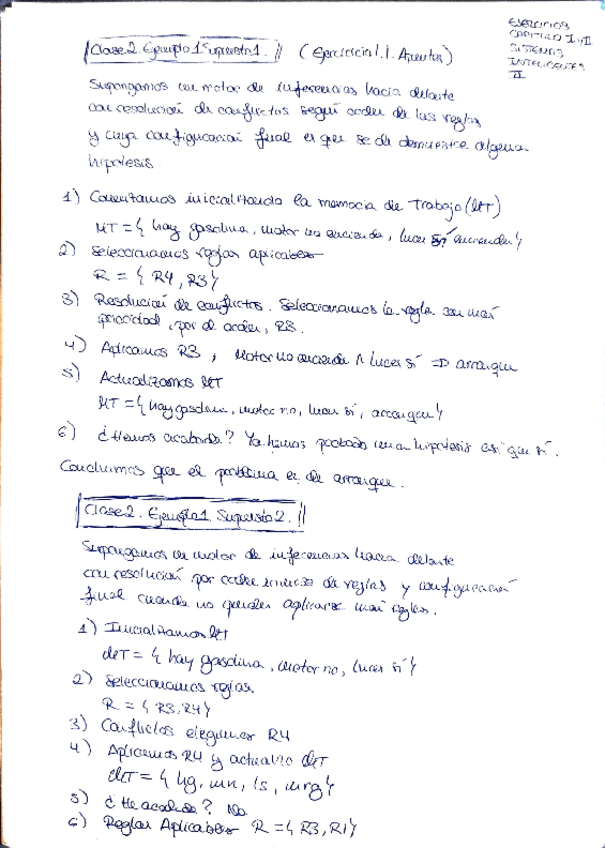 EJERCICIOS
CAPITULO I y II
SISTEMAS
INTELIGENTES
II
Clase 2. Ejemplo 1 Supuesto 1. // (Ejercicio 1.1. Apuntes)
Supongamos un motor de inferencias hacia delante
con resolución de conflictos según orden de las reglas
y cuya configuración final es que se de demuestre alguna
hipótesis.
1) Comenzamos inicializando la memoria de Trabajo (MT)
MT = { hay gasolina, motor no enciende, luces sí encienden }
2) Seleccionamos reglas aplicables
R = { R4, R3 }
3) Resolución de conflictos. Seleccionamos la regla con mas
prioridad, por el orden, R3.
4) Aplicamos R3, Motor no enciende ∧ luces sí ⇒ arranque
5) Actualizamos MT
MT = { hay gasolina, motor no, luces sí, arranque }
6) ¿Hemos acabado? Ya hemos probado una hipótesis así que sí.
Concluimos que el problema es de arranque.
Clase 2. Ejemplo 1 Supuesto 2. //
Supongamos un motor de inferencias hacia delante
con resolución por orden inverso de reglas y configuración
final cuando no puedan aplicarse más reglas.
1) Inicializamos MT
MT = { hay gasolina, motor no, luces sí }
2) Seleccionamos reglas
R = { R3, R4 }
3) Conflictos elegimos R4
4) Aplicamos R4 y actualizo MT
MT = { hg, mn, ls, mrg }
5) ¿He acabado? No
6) Reglas Aplicables R = { R3, R1 }